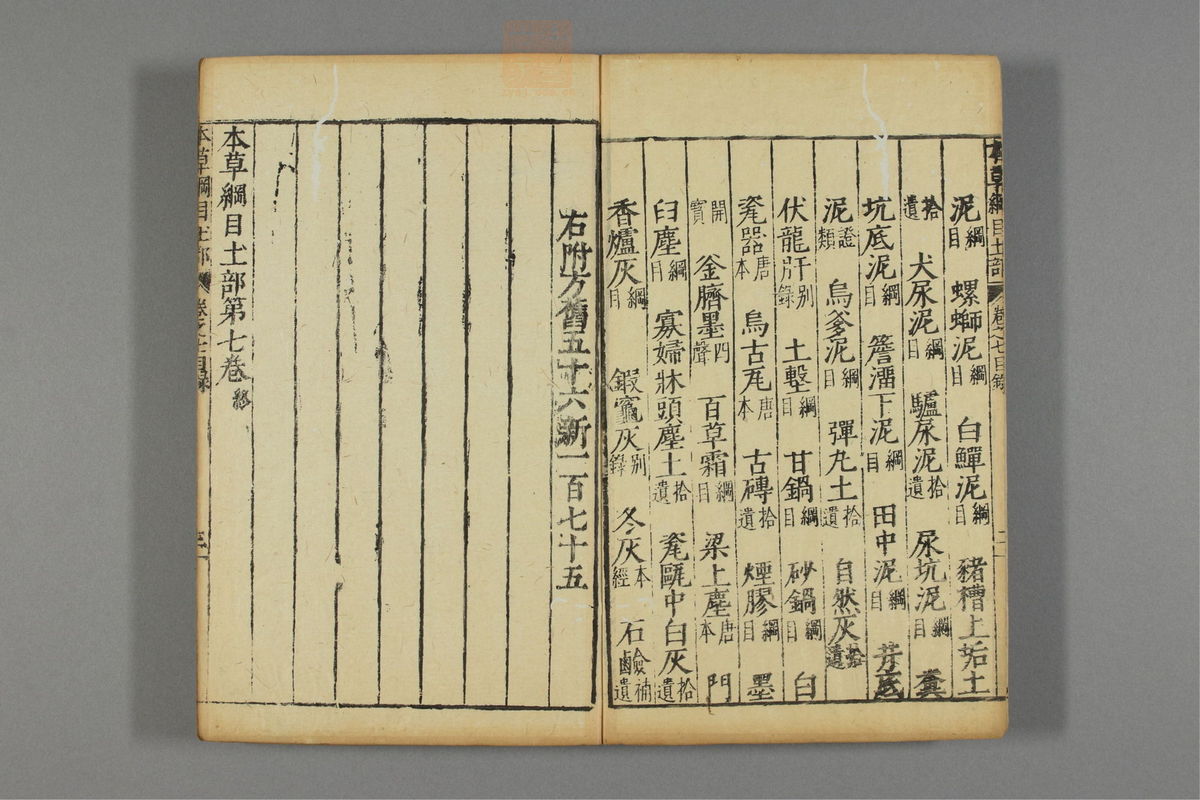 本草綱目土部 卷之七目錄 二
泥綱目 螺螄泥綱目 白鱓泥綱目 豬槽上垢土
拾遺 犬尿泥綱目 驢尿泥拾遺 尿坑泥綱目 糞
坑底泥綱目 簷溜下泥綱目 田中泥綱目
泥證類 烏爹泥綱目 彈丸土拾遺 自然灰拾遺
伏龍肝别錄 土墼綱目 甘鍋綱目 砂鍋綱目 白
瓷器唐本 烏古瓦唐本 古磚拾遺 煙膠綱目 墨
開寶 釜臍墨四聲 百草霜綱目 梁上塵唐本 門
臼塵綱目 寡婦牀頭塵土拾遺 瓷甌中白灰拾遺
香爐灰綱目 鍜竈灰别錄 冬灰本經 石鹼補遺
右附方舊五十六新一百七十五
本草綱目土部第七卷
本草綱目土部 卷之七目錄